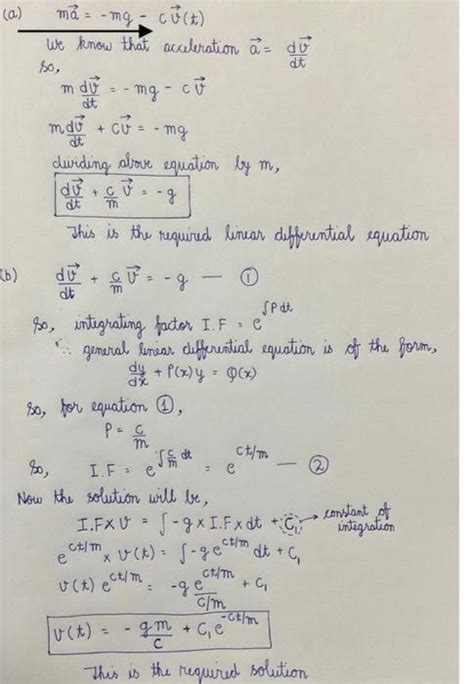 (a) m\vec{a} = -mg - c\vec{v}(t)
We know that acceleration \vec{a} = \frac{d\vec{v}}{dt}
So,
m\frac{d\vec{v}}{dt} = -mg - c\vec{v}
m\frac{d\vec{v}}{dt} + c\vec{v} = -mg
dividing above equation by m,
\frac{d\vec{v}}{dt} + \frac{c}{m}\vec{v} = -g
This is the required linear differential equation
(b) \frac{d\vec{v}}{dt} + \frac{c}{m}\vec{v} = -g — ①
So, integrating factor I.F = e^{∫Pdt}
∵ general linear differential equation is of the form,
\frac{dy}{dx} + P(x)y = Q(x)
So, for equation ①,
P = \frac{c}{m}
So, I.F = e^{∫\frac{c}{m}dt} = e^{ct/m} — ②
Now the solution will be,
I.F × v = ∫-g × I.F × dt + C₁ → constant of integration
e^{ct/m} × v(t) = ∫-g e^{ct/m} dt + C₁
v(t) e^{ct/m} = -g\frac{e^{ct/m}}{c/m} + C₁
v(t) = -\frac{gm}{c} + C₁e^{-ct/m}
This is the required solution